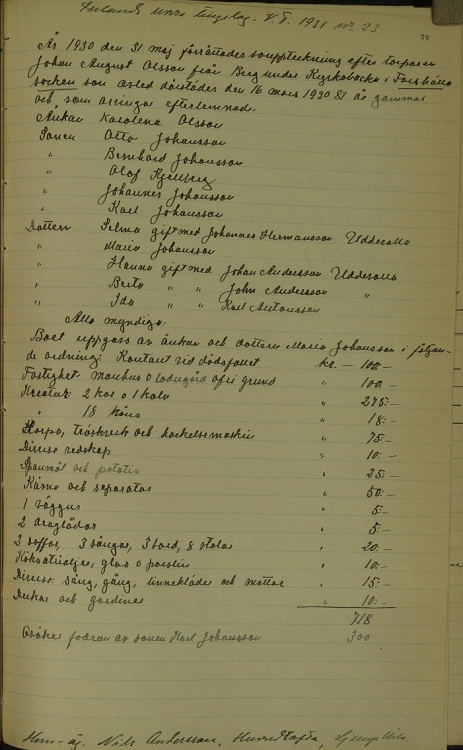 Inlands norra tingslag. V.T. 1931 № 23
79
År 1930 den 31 maj förrättades bouppteckning efter torparen
Johan August Olsson från Berg under Kyrkobacka i Forshälla
socken som avled därstädes den 16 mars 1930 81 år gammal
och som arvingar efterlemnade.
Änkan Karolena Olsson
Sonen Otto Johansson
" Bernhard Johansson
" Olof Kjellberg
" Johannes Johansson
" Karl Johansson
Dottern Selma gift med Johannes Hermansson Uddevalla
" Maria Johansson
" Hanna gift med Johan Andersson Uddevalla
" Berta " " John Andersson "
" Ida " " Karl Antonsson
Alla myndiga.
Boet uppgavs av änkan och dottern Maria Johansson i följan-
de ordning: Kontant vid dödsfallet kr. – 100.–
Fastighet: manhus o ladugård å fri grund " 100.–
Kreatur: 2 kor o 1 kalv " 275:–
" 18 höns " 18:–
Harpa, tröskverk och hackelsemaskin " 75:–
Diverse redskap " 10:–
Spanmål och potatis " 25:–
Kärna och separator " 50:–
1 väggur " 5:–
2 draglådor " 5:–
2 soffor, 3 sängar, 3 bord, 8 stolar " 20.–
Köksattiraljer, glas o porslin " 10:–
Diverse: säng, gång, linnekläder och mattor " 15:–
Dukar och gardiner " 10:–
718
fodran av sonen Karl Johansson 300
Nils Andersson,